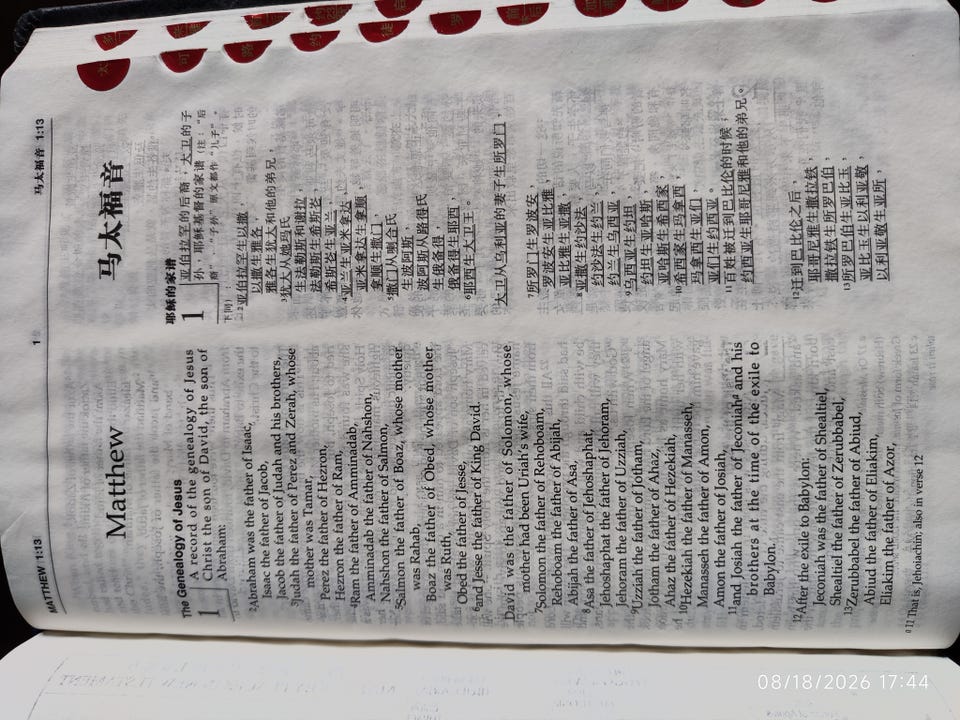 MATTHEW 1:13
1
马太福音 1:13
Matthew
The Genealogy of Jesus
1 A record of the genealogy of Jesus
Christ the son of David, the son of
Abraham:
2Abraham was the father of Isaac,
Isaac the father of Jacob,
Jacob the father of Judah and his brothers,
3Judah the father of Perez and Zerah, whose
mother was Tamar,
Perez the father of Hezron,
Hezron the father of Ram,
4Ram the father of Amminadab,
Amminadab the father of Nahshon,
Nahshon the father of Salmon,
5Salmon the father of Boaz, whose mother
was Rahab,
Boaz the father of Obed, whose mother
was Ruth,
Obed the father of Jesse,
6and Jesse the father of King David.
David was the father of Solomon, whose
mother had been Uriah's wife,
7Solomon the father of Rehoboam,
Rehoboam the father of Abijah,
Abijah the father of Asa,
8Asa the father of Jehoshaphat,
Jehoshaphat the father of Jehoram,
Jehoram the father of Uzziah,
9Uzziah the father of Jotham,
Jotham the father of Ahaz,
Ahaz the father of Hezekiah,
10Hezekiah the father of Manasseh,
Manasseh the father of Amon,
Amon the father of Josiah,
11and Josiah the father of Jeconiaha and his
brothers at the time of the exile to
Babylon.
12After the exile to Babylon:
Jeconiah was the father of Shealtiel,
Shealtiel the father of Zerubbabel,
13Zerubbabel the father of Abiud,
Abiud the father of Eliakim,
Eliakim the father of Azor,
a 11 That is, Jehoiachin; also in verse 12
马太福音
耶稣的家谱
1 亚伯拉罕的后裔，大卫的子
孙，耶稣基督的家谱（注：“后
裔”，“子孙”原文都作“儿子”。
下同）：
2亚伯拉罕生以撒，
以撒生雅各，
雅各生犹大和他的弟兄，
3犹大从她玛氏
生法勒斯和谢拉，
法勒斯生希斯仑，
希斯仑生亚兰，
4亚兰生亚米拿达，
亚米拿达生拿顺，
拿顺生撒门，
5撒门从喇合氏
生波阿斯，
波阿斯从路得氏
生俄备得，
俄备得生耶西，
6耶西生大卫王。
大卫从乌利亚的妻子生所罗门，
7所罗门生罗波安，
罗波安生亚比雅，
亚比雅生亚撒，
8亚撒生约沙法，
约沙法生约兰，
约兰生乌西亚，
9乌西亚生约坦，
约坦生亚哈斯，
亚哈斯生希西家，
10希西家生玛拿西，
玛拿西生亚们，
亚们生约西亚，
11百姓被迁到巴比伦的时候，
约西亚生耶哥尼雅和他的弟兄。
12迁到巴比伦之后，
耶哥尼雅生撒拉铁，
撒拉铁生所罗巴伯，
13所罗巴伯生亚比玉，
亚比玉生以利亚敬，
以利亚敬生亚所，
太
可
路
约
徒
罗
08/18/2026 17:44